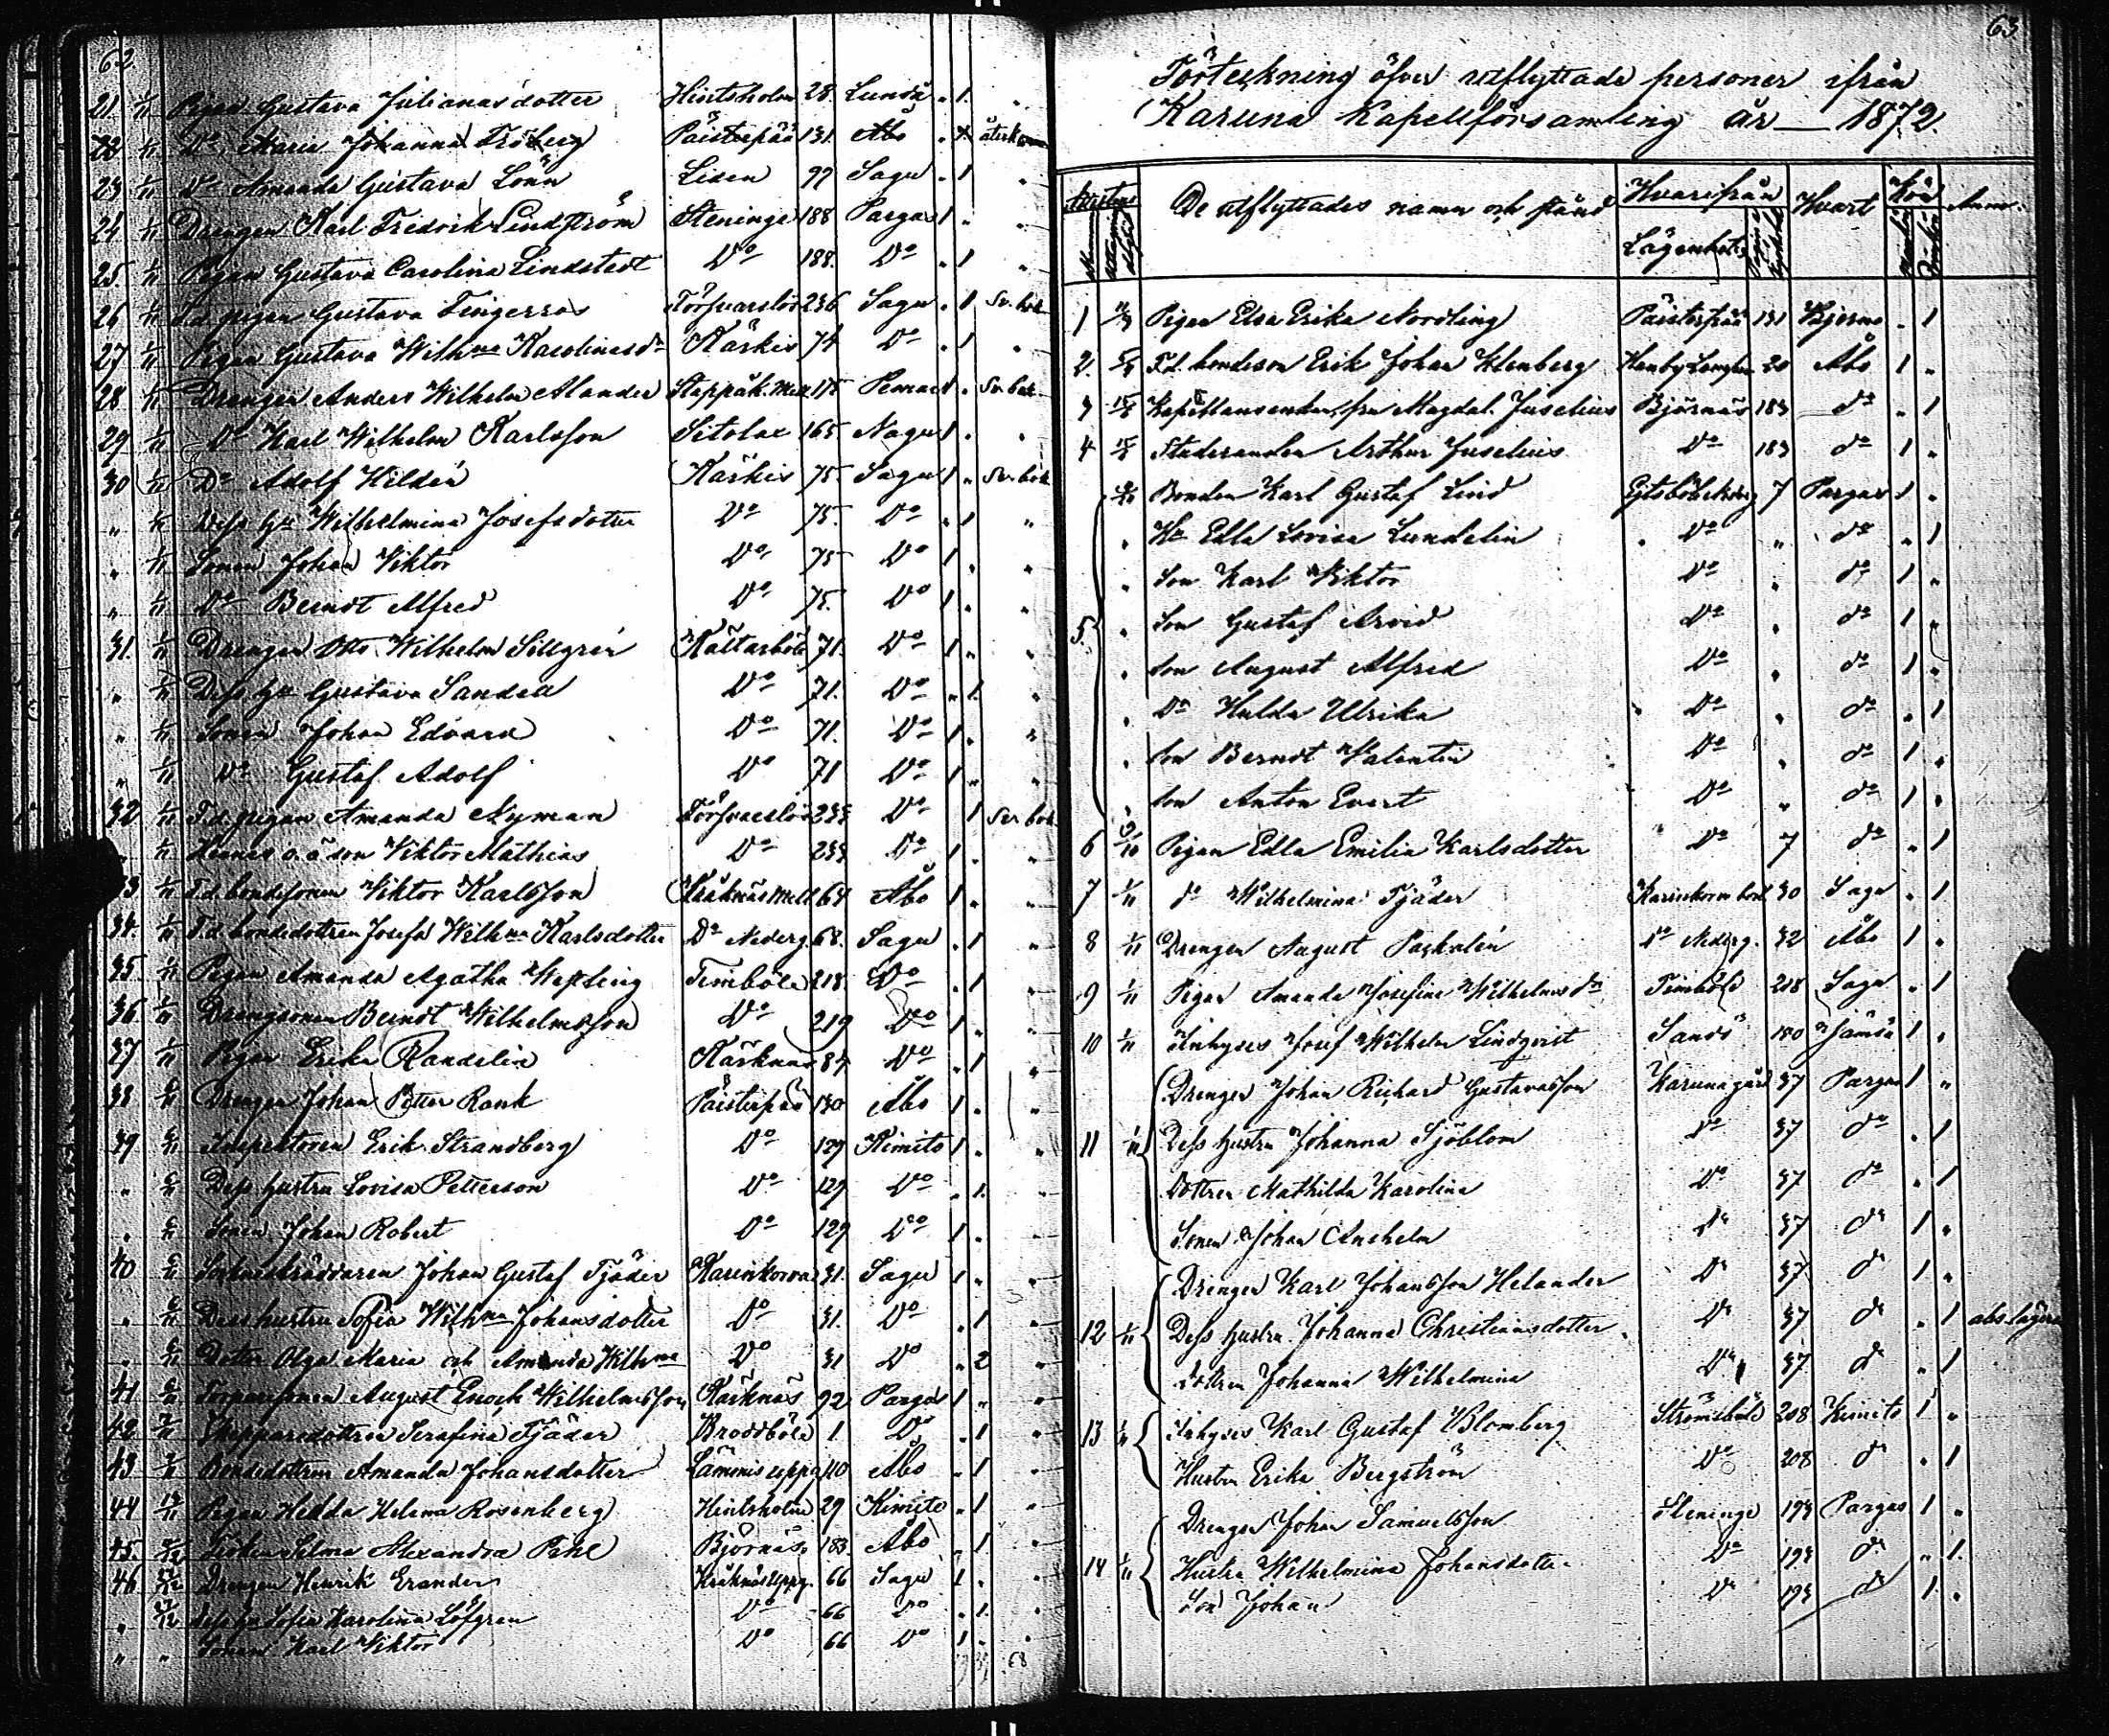 62
21. 1/11 Pigan Gustava Julianasdotter Hintsholm 28. Lundo „ 1. „
22 1/11 Do Maria Johanna Fröberg Päisterpää 131. Åbo „ 1 återkom
23 1/11 Do Amanda Gustava Lönn Liden 99 Sagu „ 1 „
24 1/11 Drengen Karl Fredrik Lindström Steninge 188 Pargas 1 „ „
25. 1/11 Pigan Gustava Carolina Lindstedt Do 188. Do „ 1 „
26 1/11 F.d. pigan Gustava Fingerros 236 Sagu „ 1 Sv. bok
27 1/11 Pigan Gustava Wilhna Karolinasdr Kärkis 74 Do „ 1 „
28 1/11 Drengen Anders Wilhelm Alander 175 Pemar 1 „ Sv. bok
29 1/11 Do Karl Wilhelm Karlsson Sitolax 165 Nagu 1 „ „
30 1/11 Do Adolf Hildén Kärkis 75. Sagu 1 „ Sv. bok
„ 1/11 Dess hu Wilhelmina Josefsdotter Do 75. Do „ 1 „
„ 1/11 Sonen Johan Viktor Do 75 Do 1 „ „
„ 1/11 Do Berndt Alfred Do 75. Do 1 „ „
31. 1/11 Drengen Otto Wilhelm Sillgrén Kättarböle 71. Do 1 „ „
„ 1/11 Dess hu Gustava Sandell Do 71. Do „ 1. „
„ 1/11 Sonen Johan Edvard Do 71. Do 1 „ „
„ 1/11 Do Gustaf Adolf Do 71 Do 1 „ „
32 1/11 F.d. pigan Amanda Nyman 233 Do 1 Sv. bok.
„ 1/11 Hennes o. ä son Viktor Mathias Do 233 Do 1 „ „
33 1/11 F.d. bondesonen Viktor Karlsson Kräknäs Mell. 64 Åbo 1 „ „
34. 1/11 F.d. bondedottren Josefa Wilhna Karlsdotter Do Nederg. 68. Sagu „ 1 „
35. 1/11 Pigan Amanda Agatha Timböle 218. Do „ 1 „
36 1/11 Drengsonen Berndt Wilhelmsson Do 219 Do 1 „ „
37 1/11 Pigan Erika Randelin Kärknäs 84 Do „ 1 „
38 Drengen Johan Petter Rank Päisterpää 130 Åbo 1 „ „
39 Inspektoren Erik Strandberg Do 129 Kimito 1 „ „
„ Dess hustru Lovisa Petterson Do 129 Do „ 1. „
„ Sonen Johan Robert Do 129 Do 1 „ „
40 Sockneskräddaren Johan Gustaf Tjäder Karinkorva 31. Sagu 1 „ „
„ Dess hustru Sofia Wilhna Johansdotter Do 31. Do „ 1 „
„ Dotter Olga Maria och Amanda Wilhna Do 31 Do „ 2 „
41 Torparesonen August Enoch Wilhelmsson Kärknäs 92 Pargas 1 „ „
42 Skepparedottren Serafina Tjäder Broddböle 1. Do „ 1 „
43 Bondedottren Amanda Johansdotter 110 Åbo „ 1 „
44 Pigan Hedda Helena Rosenberg Hintsholm 29 Kimito „ 1 „
45. Fröken Selma Alexandra Björnäs 183 Åbo „ 1 „
46 Drengen Henrik Erander Kräknäs Uppg. 66 Sagu 1 „ „
„ Dess hu Sofia Karolina Löfgren Do 66 Do „ 1. „
„ „ Sonen Karl Viktor Do 66 Do 1 „ „
63
Förteckning öfver utflyttade personer ifrån
Karuna Kapellförsamling år — 1872.
De utflyttades namn och stånd Hvarifrån Hvart Kön Anm.
Lägenhet
1 Pigan Elsa Erika Nordling Päisterpää 131 Bjerno „ 1
2. F.d. bondeson Erik Johan Klenberg 20 Åbo 1 „
3 Kapellansenkefru Magdal. Juselius Björnäs 183 do „ 1
4 Studeranden Arthur Juselius Do 183 do 1 „
5. Bonden Karl Gustaf Lind 7 Pargas 1 „
„ Hu Edla Lovisa Lundelin Do „ do „ 1
„ Son Karl Viktor Do „ do 1 „
„ Son Gustaf Arvid Do „ do 1 „
„ Son August Alfred Do „ do 1 „
„ Dr Hulda Ulrika Do „ do „ 1
„ Son Berndt Valentin Do „ do 1 „
„ Son Anton Evert Do „ do 1 „
6 Pigan Edla Emilia Karlsdotter Do 7 do „ 1
7 1/11 do Wilhelmina Tjäder 30 Sagu „ 1
8 1/11 Drengen August Paskalén Do Nederg. 32 Åbo 1 „
9 1/11 Pigan Amanda Josefina Wilhelmsdr Timböle 218 Sagu „ 1
10 1/11 Inhyses Josef Wilhelm Lindqvist Sandö 180 Jämsä 1 „
11 1/11 Drengen Johan Richard Gustavsson Karuna gård 37 Pargas 1 „
Dess hustru Johanna Sjöblom Do 37 do „ 1
Dottren Mathilda Karolina Do 37 do „ 1
Sonen Johan Anshelm Do 37 do 1 „
12 1/11 Drengen Karl Johansson Helander Do 37 do 1 „
Dess hustru Johanna Christiansdotter Do 37 do „ 1
Dottren Johanna Wilhelmina Do 37 do „ 1
13 1/11 Inhyses Karl Gustaf Blomberg Strömsböle 208 Kimito 1 „
Hustru Erika Bergström Do 208 do „ 1
14 1/11 Drengen Johan Samuelsson Steninge 193 Pargas 1 „
Hustru Wilhelmina Johansdotter Do 193 do „ 1.
Son Johan Do 193 do 1 „